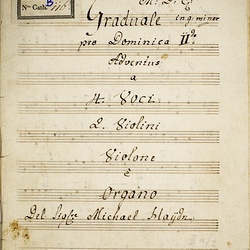 Nro Cath. B 116
Graduale in g minor
pro Dominica II da
Adventus
a
4. Voci
2. Violini
Violone
e
Organo
Del Sigre Michael Haydn